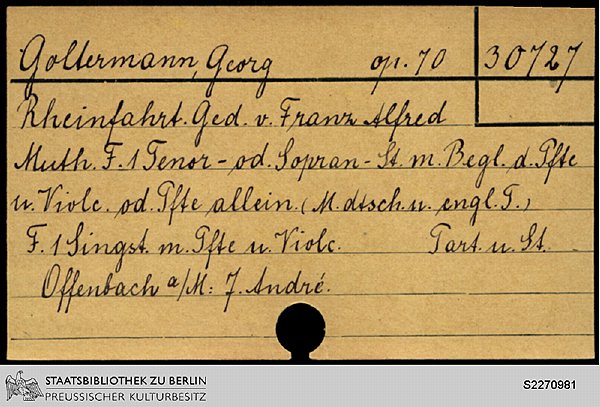 Goltermann, Georg op. 70 30727
Rheinfahrt. Ged. v. Franz Alfred
Muth. F. 1 Tenor- od. Sopran-St. m. Begl. d. Pfte
u. Violc. od. Pfte allein. (M. dtsch. u. engl. T.)
F. 1 Singst. m. Pfte u. Violc. Part. u. St.
Offenbach a/M: J. André.
STAATSBIBLIOTHEK ZU BERLIN
PREUSSISCHER KULTURBESITZ
S2270981